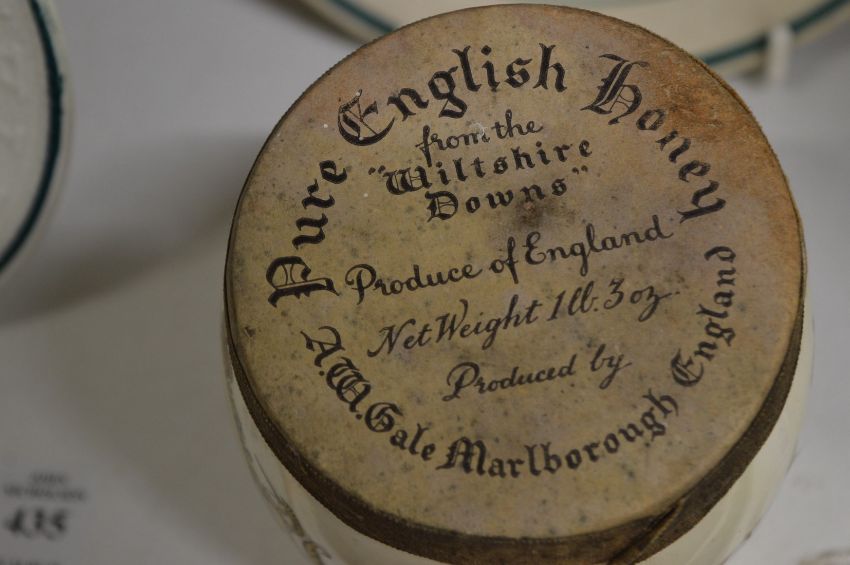 Pure English Honey
from the
"Wiltshire
Downs"
Produce of England
Net Weight 1 lb. 3 oz.
Produced by
A.W. Gale Marlborough England
435